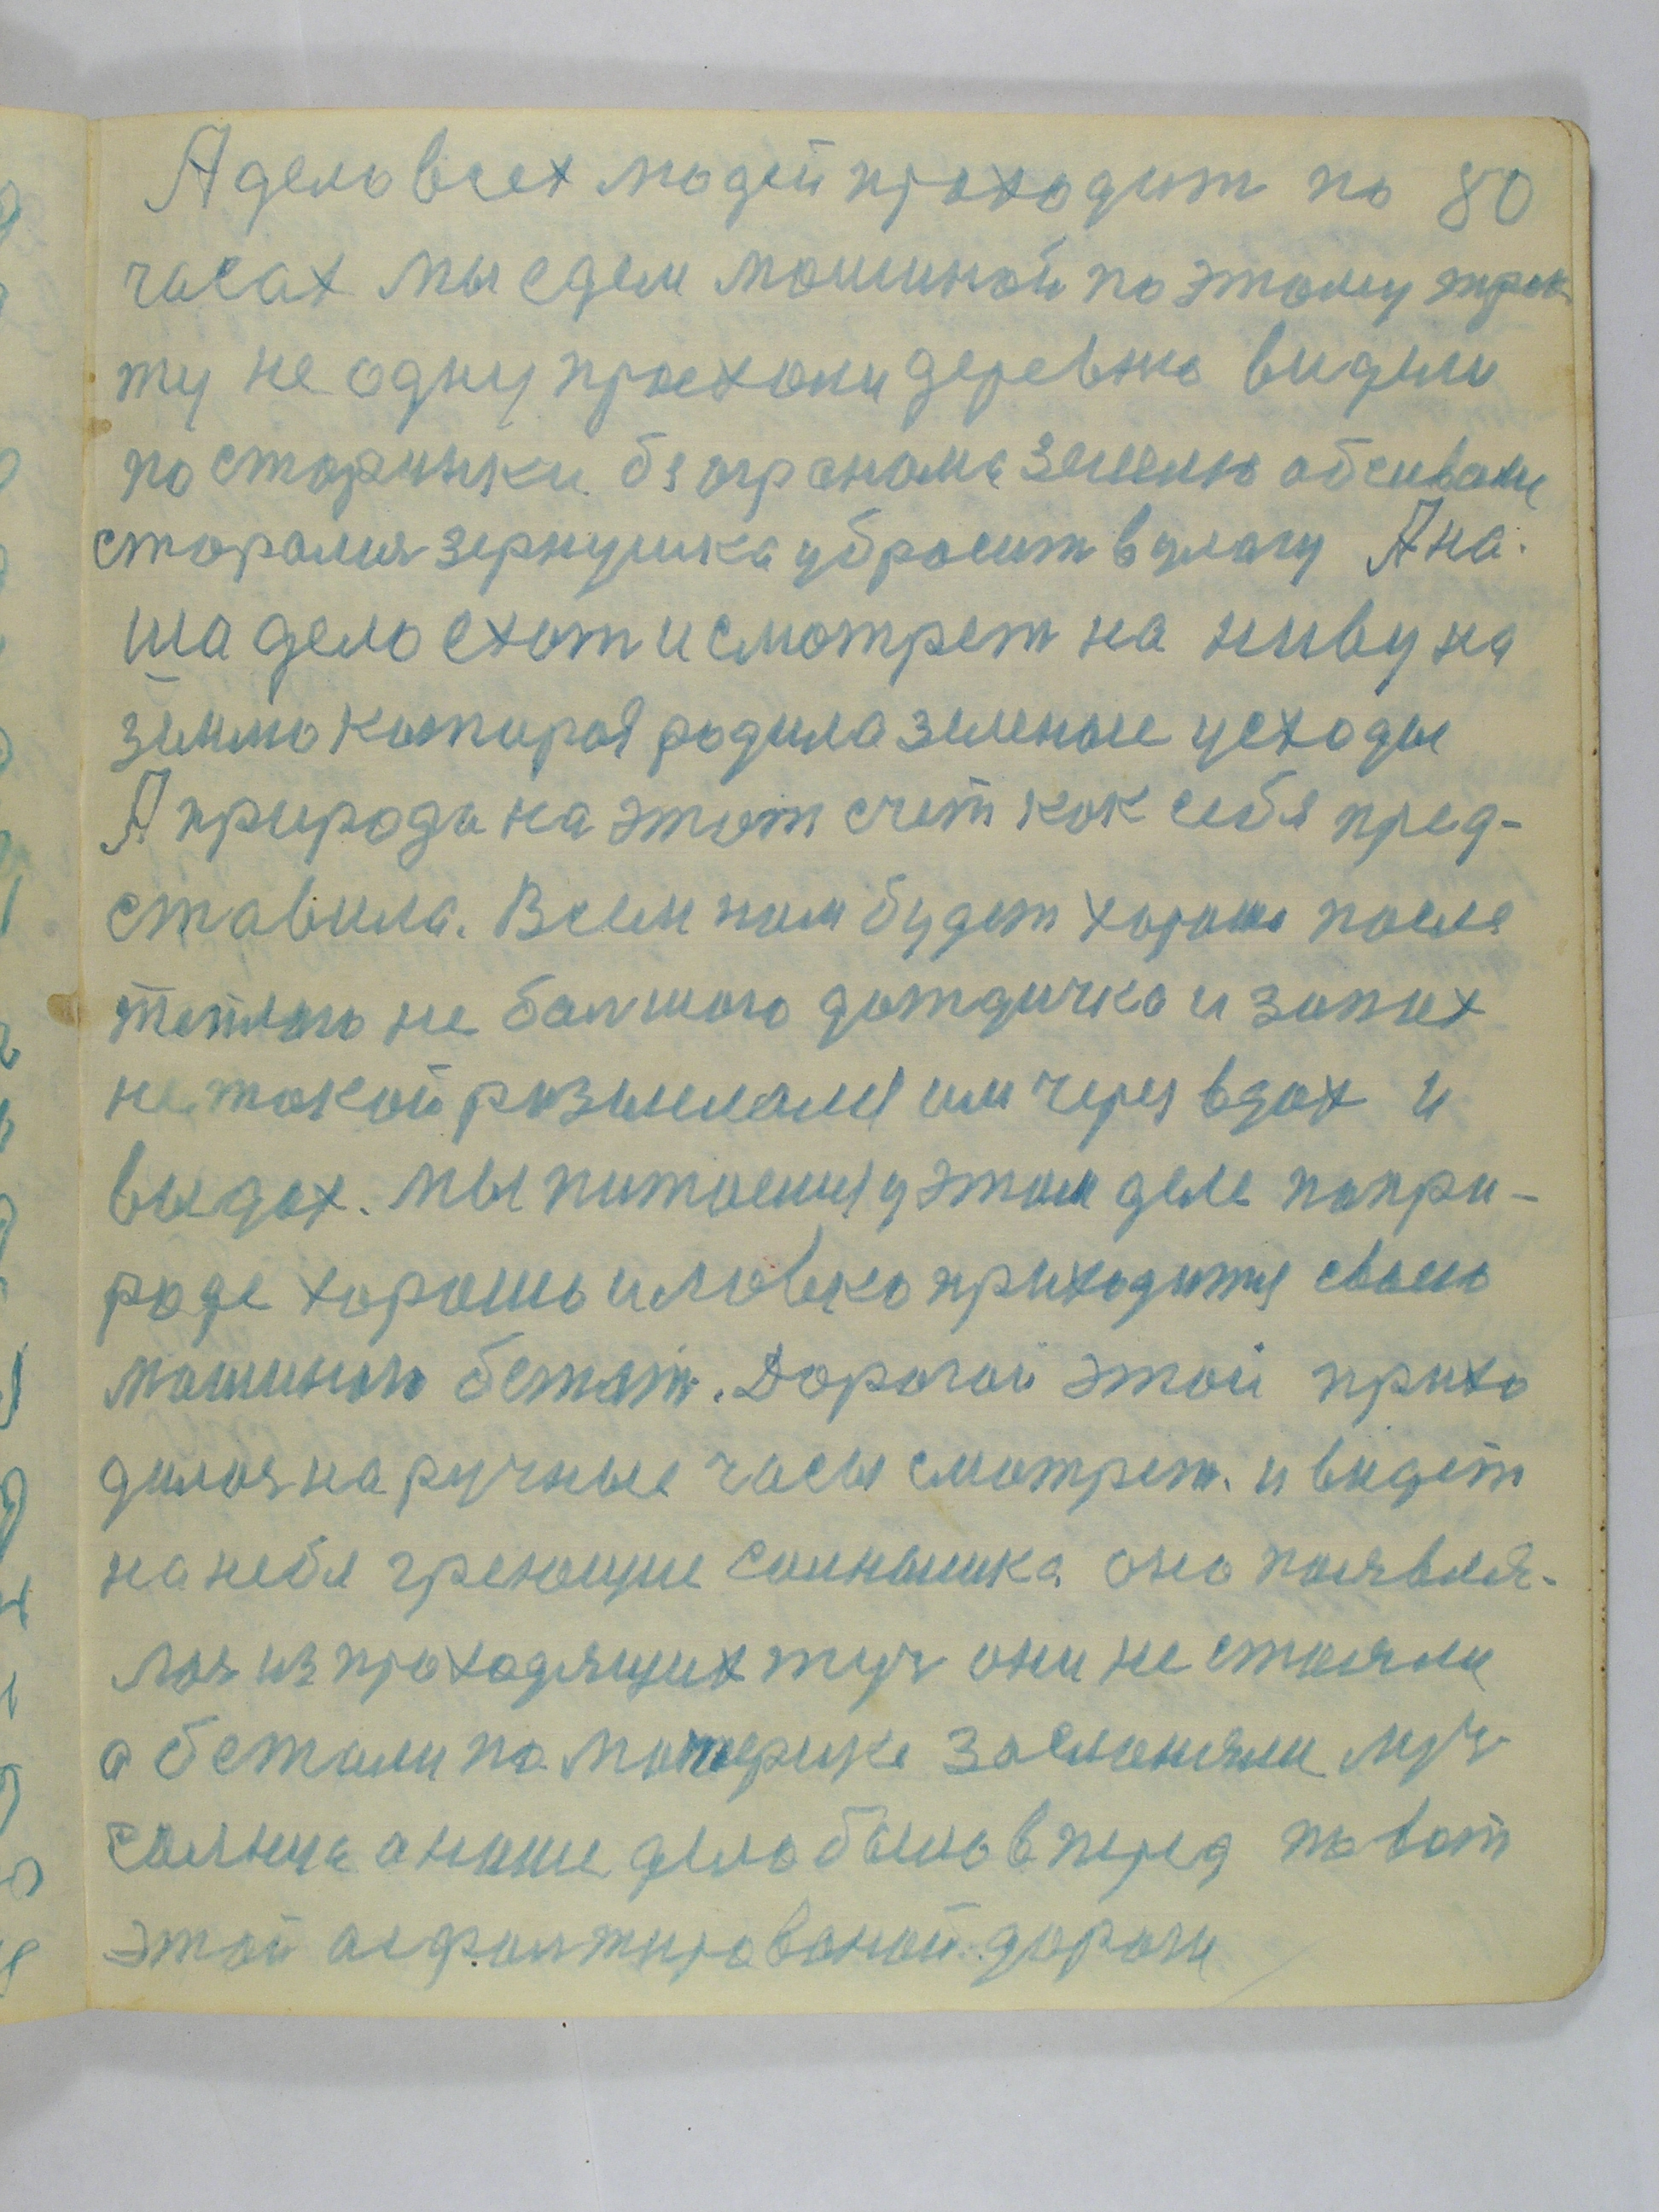 А дело всех людей проходит по 80
часах мы едем мошиной по этому трак
ту не одну проехоли деревню видели
по старинки бз огронома землю обсивали
сторолися зернушка убросит в улагу А на.
ша дело ехат и смотрет на ниву на
землю каторая родила зеленые усходы
А природа на этот счет как себя пред-
ставила. Всем нам будет хорошо после
теплаго не балшого дождичка и запах
не такой розымлался им через вдох и
выдох. мы питаемся у этом деле попри-
роде хорошо и ловко приходится своею
мошиною бежат. Дорогой этой прихо
дилося на ручные часы смотрет. и видет
на небя греющие солнышка оно появля-
лося из проходящих туч они не стояли
а бежали по материке заслоняли луч
солнца а наше дело было в перед по вот
этой асфолтированой дороги